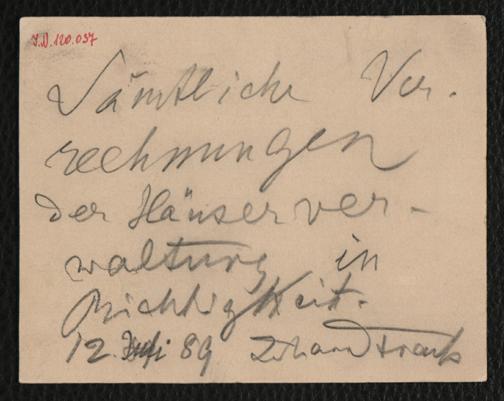 I.N. 120.037
Sämtliche Ver-
rechnungen
der Häuserver-
waltung in
Richtigkeit.
12. Juli 89